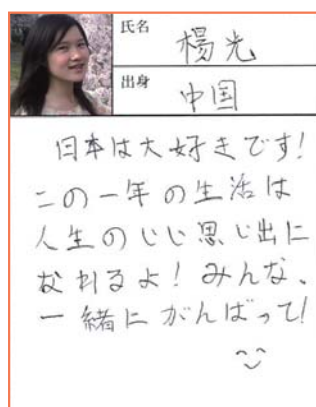 氏名 楊光
出身 中国
日本は大好きです!
この一年の生活は
人生のいい思い出に
なれるよ! みんな、
一緒にがんばって!